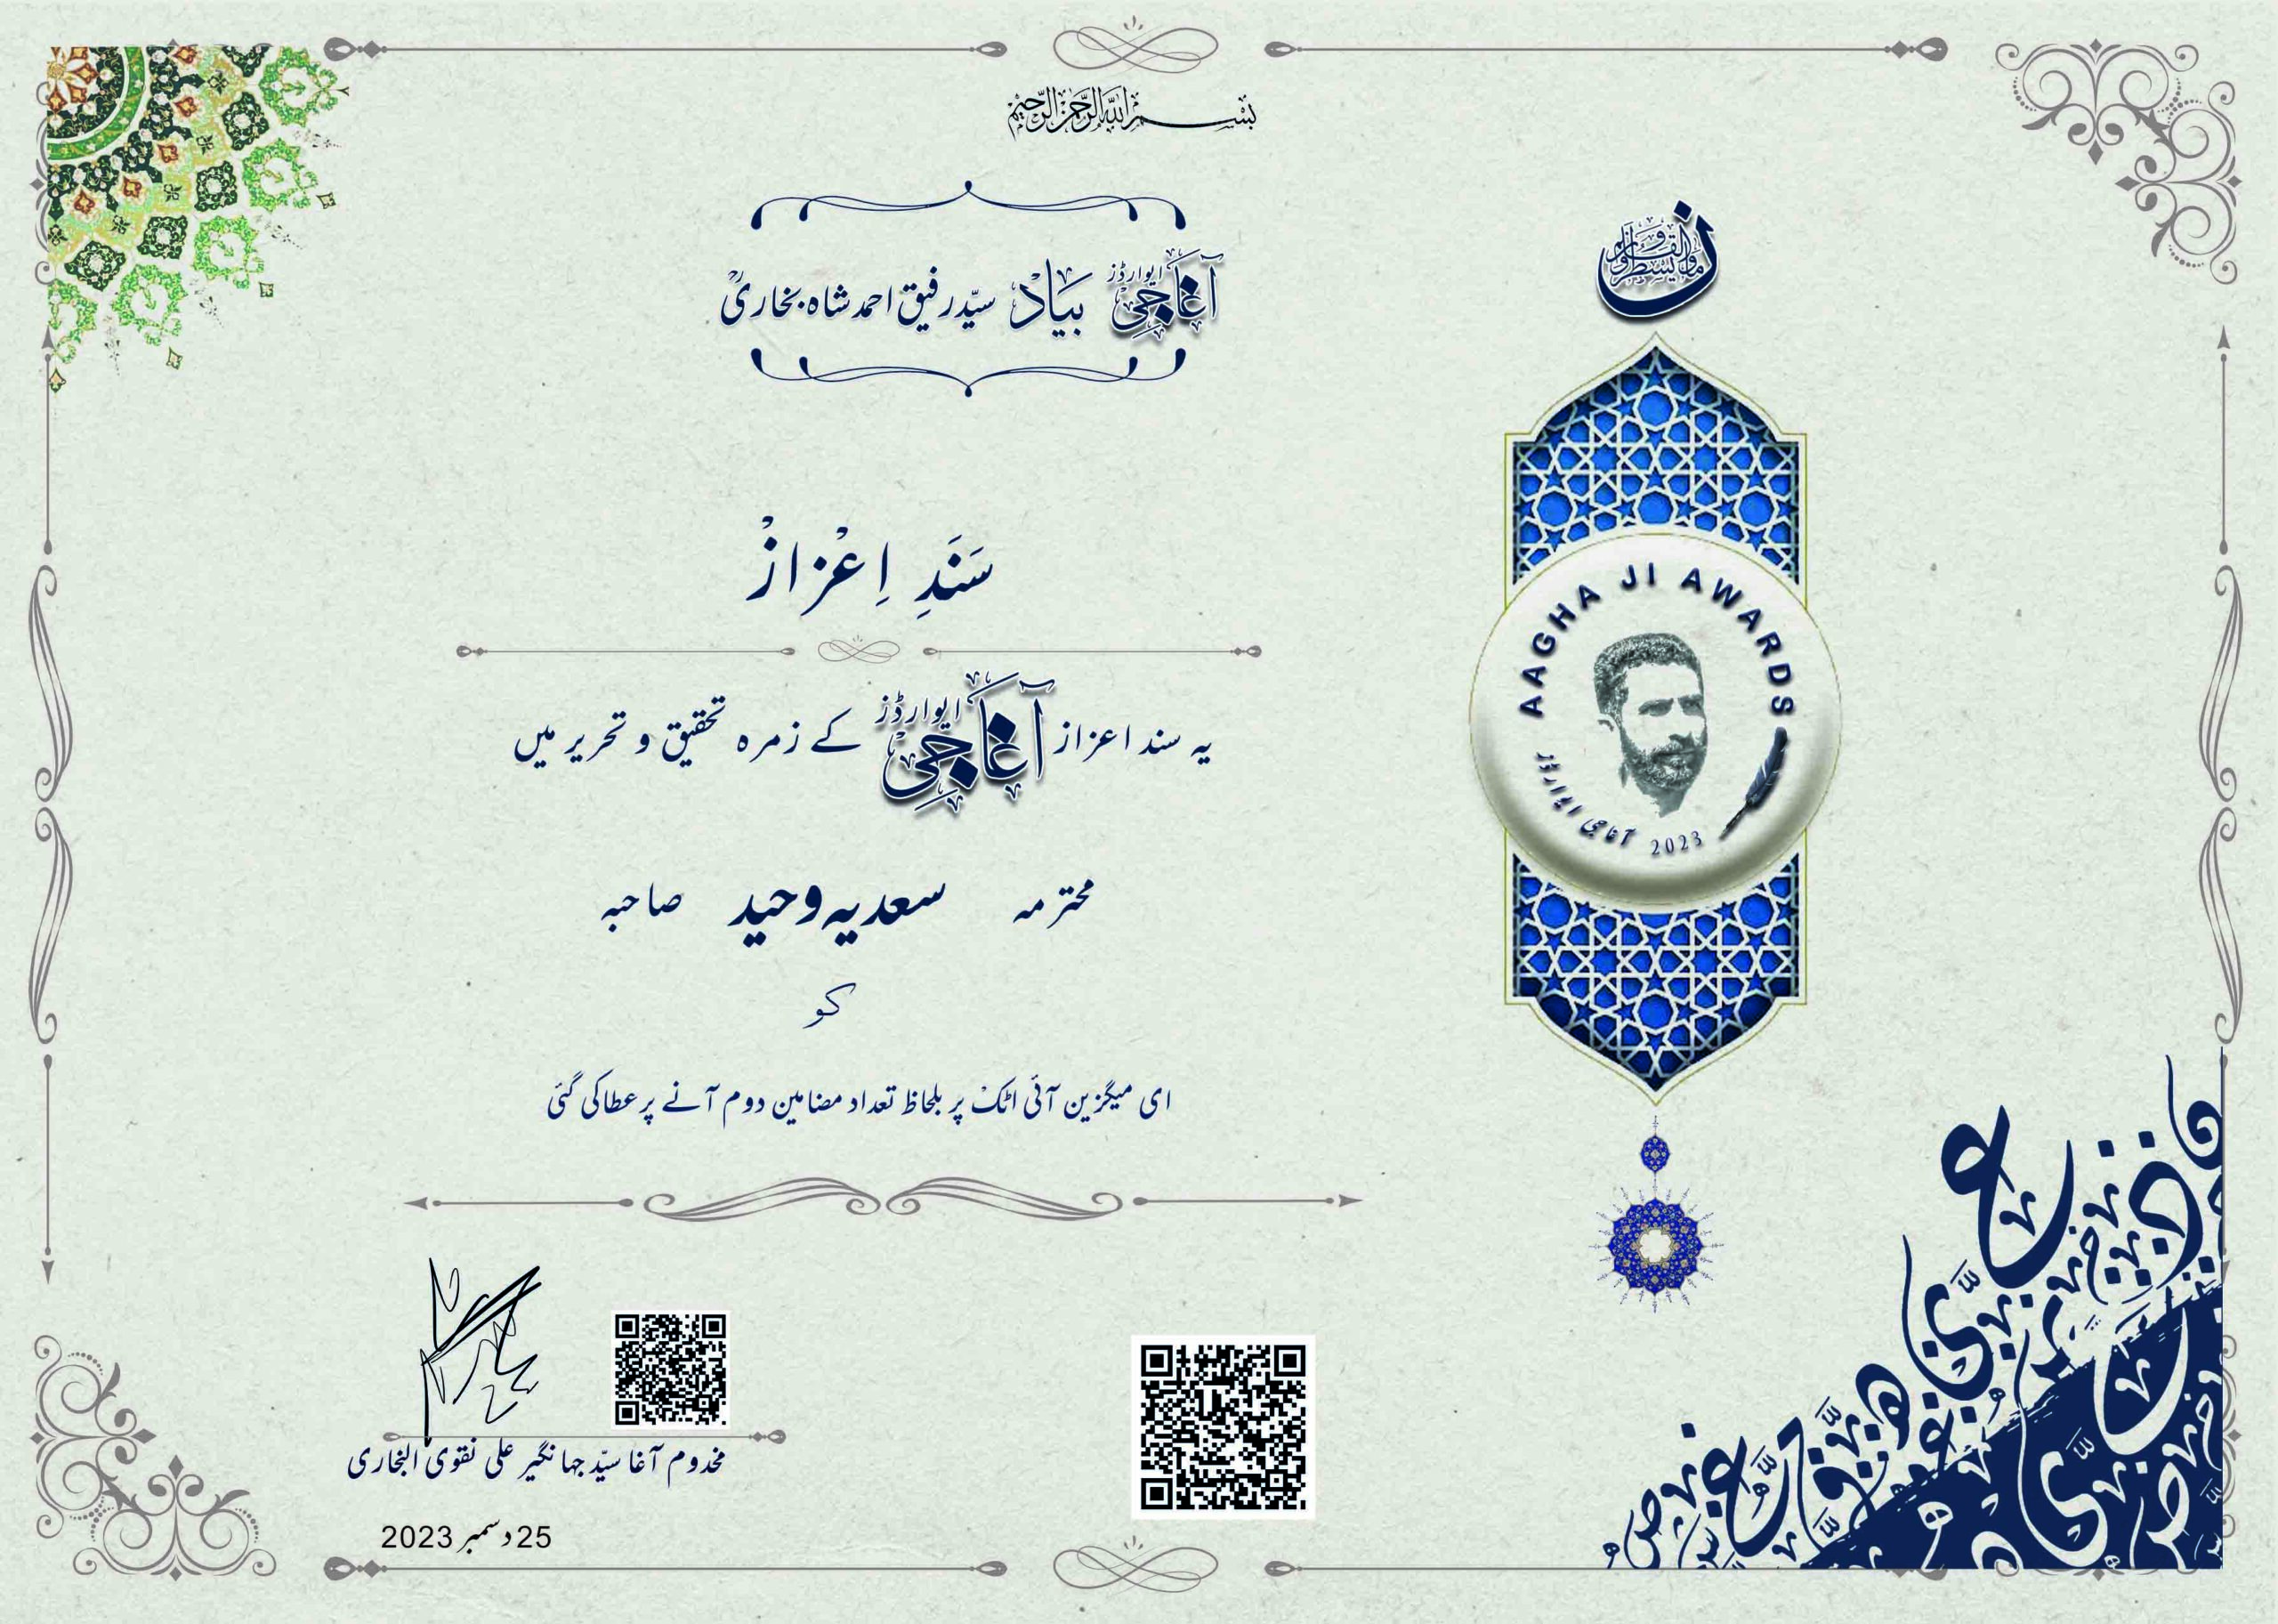 بسم الله الرحمن الرحیم
آغا جی ایوارڈز بیاد سیّد رفیق احمد شاہ بخاریؒ
ن والقلم وما یسطرون
سَنَدِ اِعْزازْ
یہ سند اعزاز آغا جی ایوارڈز کے زمرہ تحقیق و تحریر میں
محترمہ سعدیہ وحید صاحبہ
کو
ای میگزین آئی اٹک پر بلحاظ تعداد مضامین دوم آنے پر عطا کی گئی
AAGHA JI AWARDS
آغا جی ایوارڈز 2023
مخدوم آغا سیّد جہانگیر علی نقوی البخاری
25 دسمبر 2023